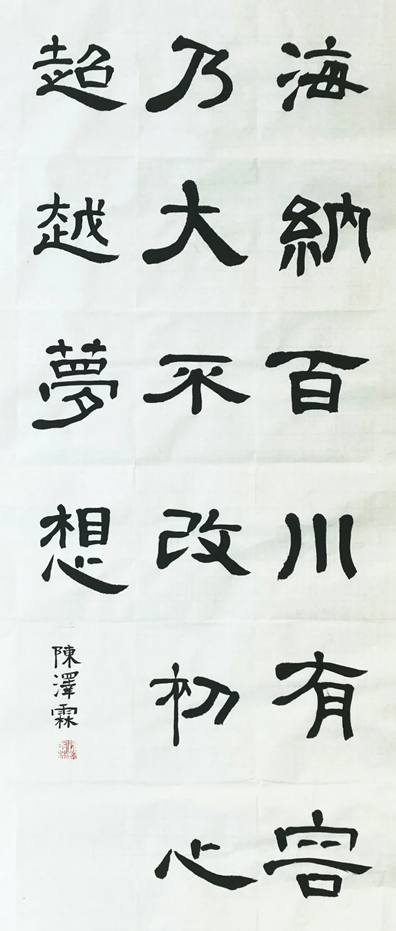 海納百川有容
乃大不改初心
超越夢想
陳澤霖